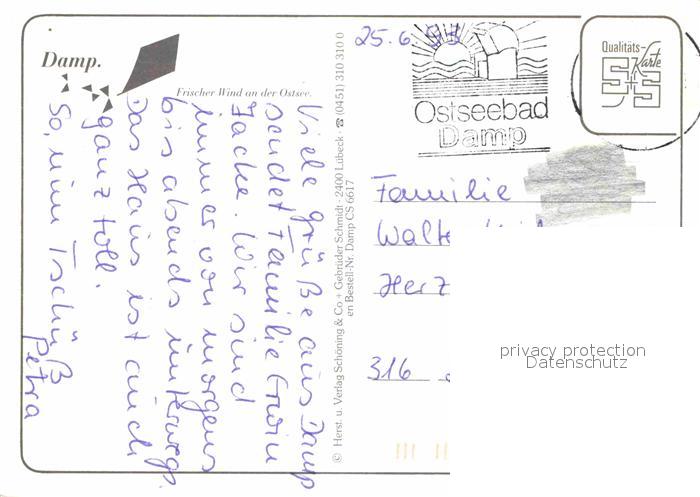 Damp.
Frischer Wind an der Ostsee.
Viele Grüße aus Damp
sendet Familie Erwin
Jacke. Wir sind
immer von morgens
bis abends unterwegs.
Das Haus ist auch
ganz toll.
So, nun Tschüß
Petra
© Herst. u. Verlag Schöning & Co + Gebrüder Schmidt · 2400 Lübeck · ☎ (0451) 310 310 0
en Bestell-Nr. Damp CS 6617
25.6.93
Ostseebad
Damp
Qualitäts-
Karte
S+S
Familie
Herz
316
privacy protection
Datenschutz